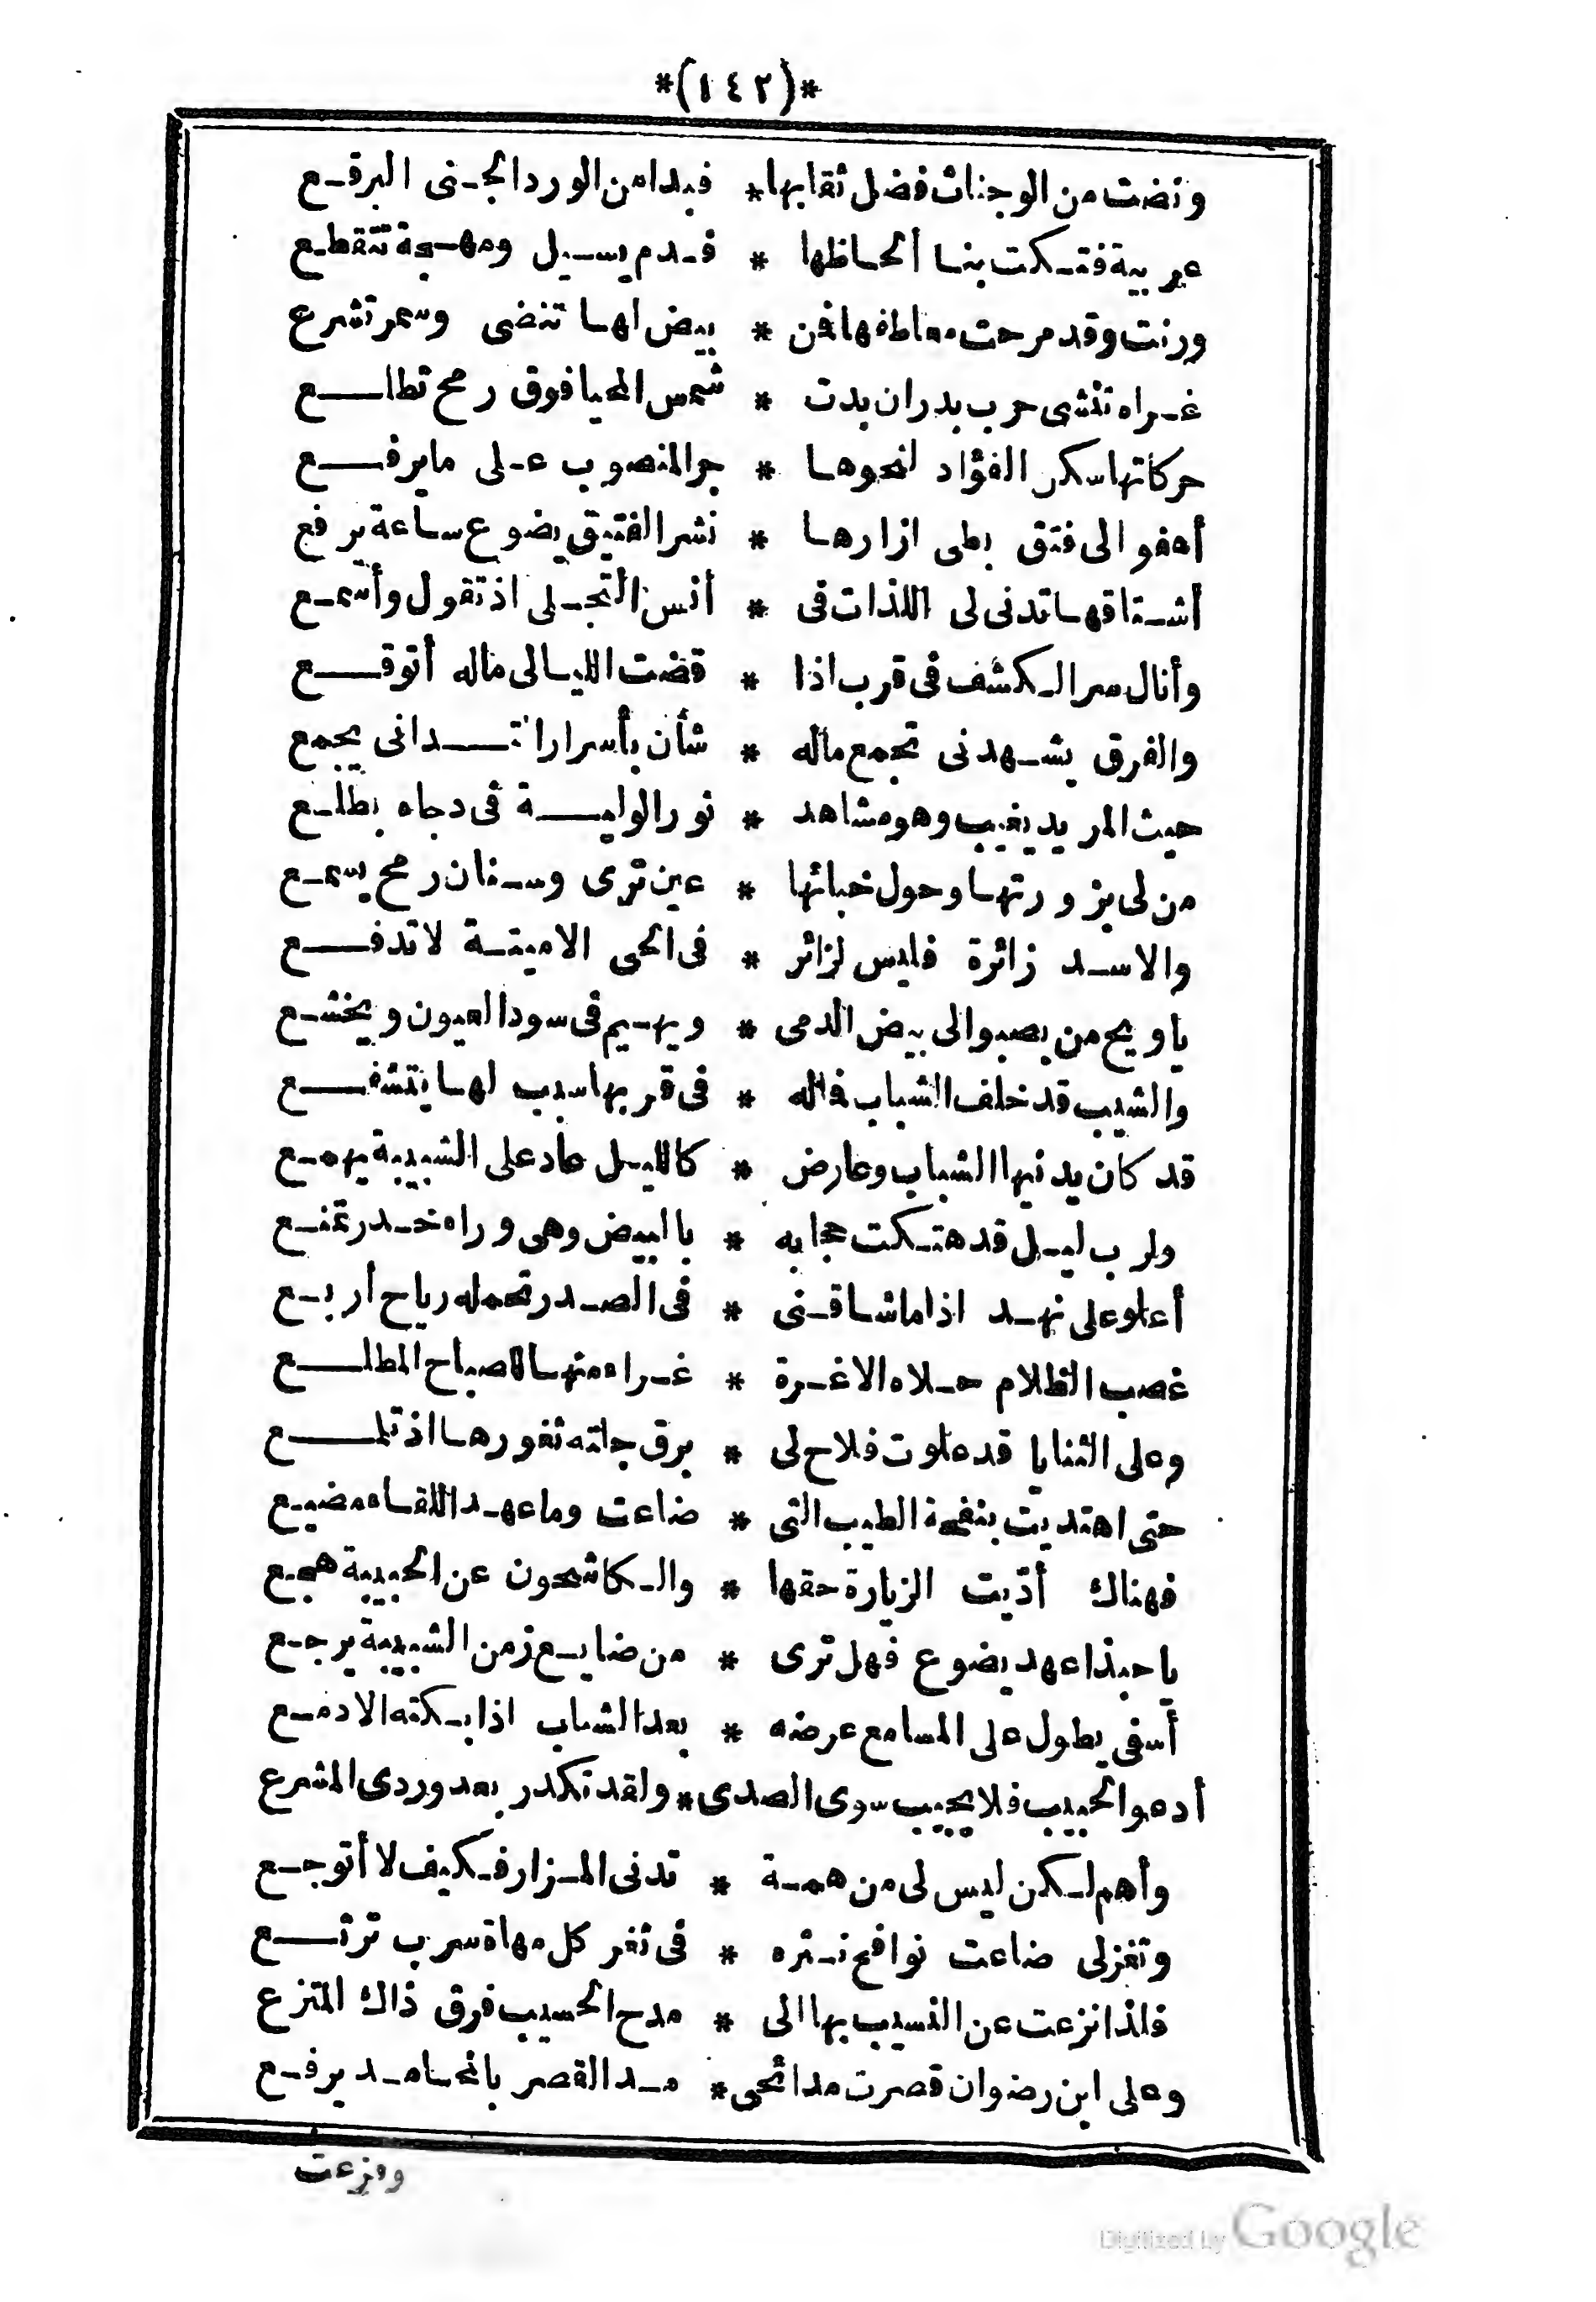 *(١٤٢)*
ونضت من الوجنات فضل نقابها * فبدا من الورد الجنى البرقع
عربية فتكت بنا ألحاظها * فدم يسيل ومهجة تتقطع
ورنت وقد مرحت معاطفها فمن * بيض لها تنضى وسمر تشرع
غراء تنشى حرب بدران بدت * شمس المحيا فوق رمح تطلع
حركاتها سكن الفؤاد لنحوها * جر المنصوب على ما يرفع
أهفو الى فتق بطى ازارها * نشر الفتيق يضوع ساعة يرفع
أشتاقها تدنى لى اللذات فى * أنس التجلى اذ تقول وأسمع
وأنال سر الكشف فى قرب اذا * قضت الليالى ماله أتوقع
والفرق يشهدنى تجمع ماله * شأن بأسرار التدانى يجمع
حيث المريد يغيب وهو مشاهد * نور الولية فى دجاه يطلع
من لى بزورتها وحول خبائها * عين ترى وسنان رمح يسمع
والاسد زائرة فليس لزائر * فى الحى الاميتة لا تدفع
يا ويح من يصبو الى بيض الدمى * ويهيم فى سود العيون ويخشع
والشيب قد خلف الشباب فماله * فى قربها سبب لها يتشفع
قد كان يدنيها الشباب وعارض * كالليل عاد على الشبيبة يهمع
ولرب ليل قد هتكت حجابه * بالبيض وهى وراء خدر تمنع
أعلو على نهد اذا ما شاقنى * فى الصدر تحمله رياح أربع
غصب الظلام حلاه الا غرة * غراء منها للصباح المطلع
وعلى الثنايا قد علوت فلاح لى * برق جلته ثغورها اذ تلمع
حتى اهتديت بنفحة الطيب التى * ضاعت وما عهد اللقاء مضيع
فهناك أديت الزيارة حقها * والكاشحون عن الحبيبة هجع
يا حبذا عهد يضوع فهل ترى * من ضايع زمن الشبيبة يرجع
أسفى يطول على المسامع عرضه * بعد الشباب اذا بكته الادمع
أدعو الحبيب فلا يجيب سوى الصدى * ولقد تكدر بعد وردى المشرع
وأهم لكن ليس لى من همة * تدنى المزار فكيف لا أتوجع
وتغزلى ضاعت نوافح نشره * فى ثغر كل مهاة سرب ترتع
فلذا نزعت عن النسيب بها الى * مدح الحسيب فرق ذاك المنزع
وعلى ابن رضوان قصرت مدائحى * مد القصر بالمحامد يرفع
ونزعت
Digitized by Google